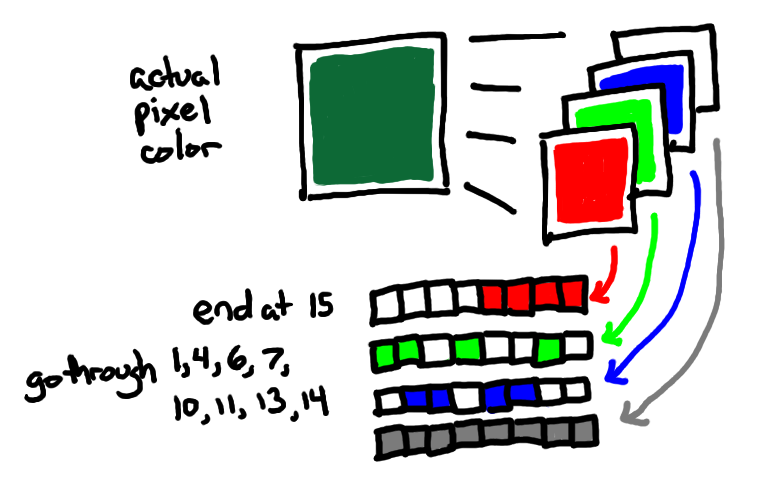 actual
pixel
color
end at 15
go through 1, 4, 6, 7,
10, 11, 13, 14